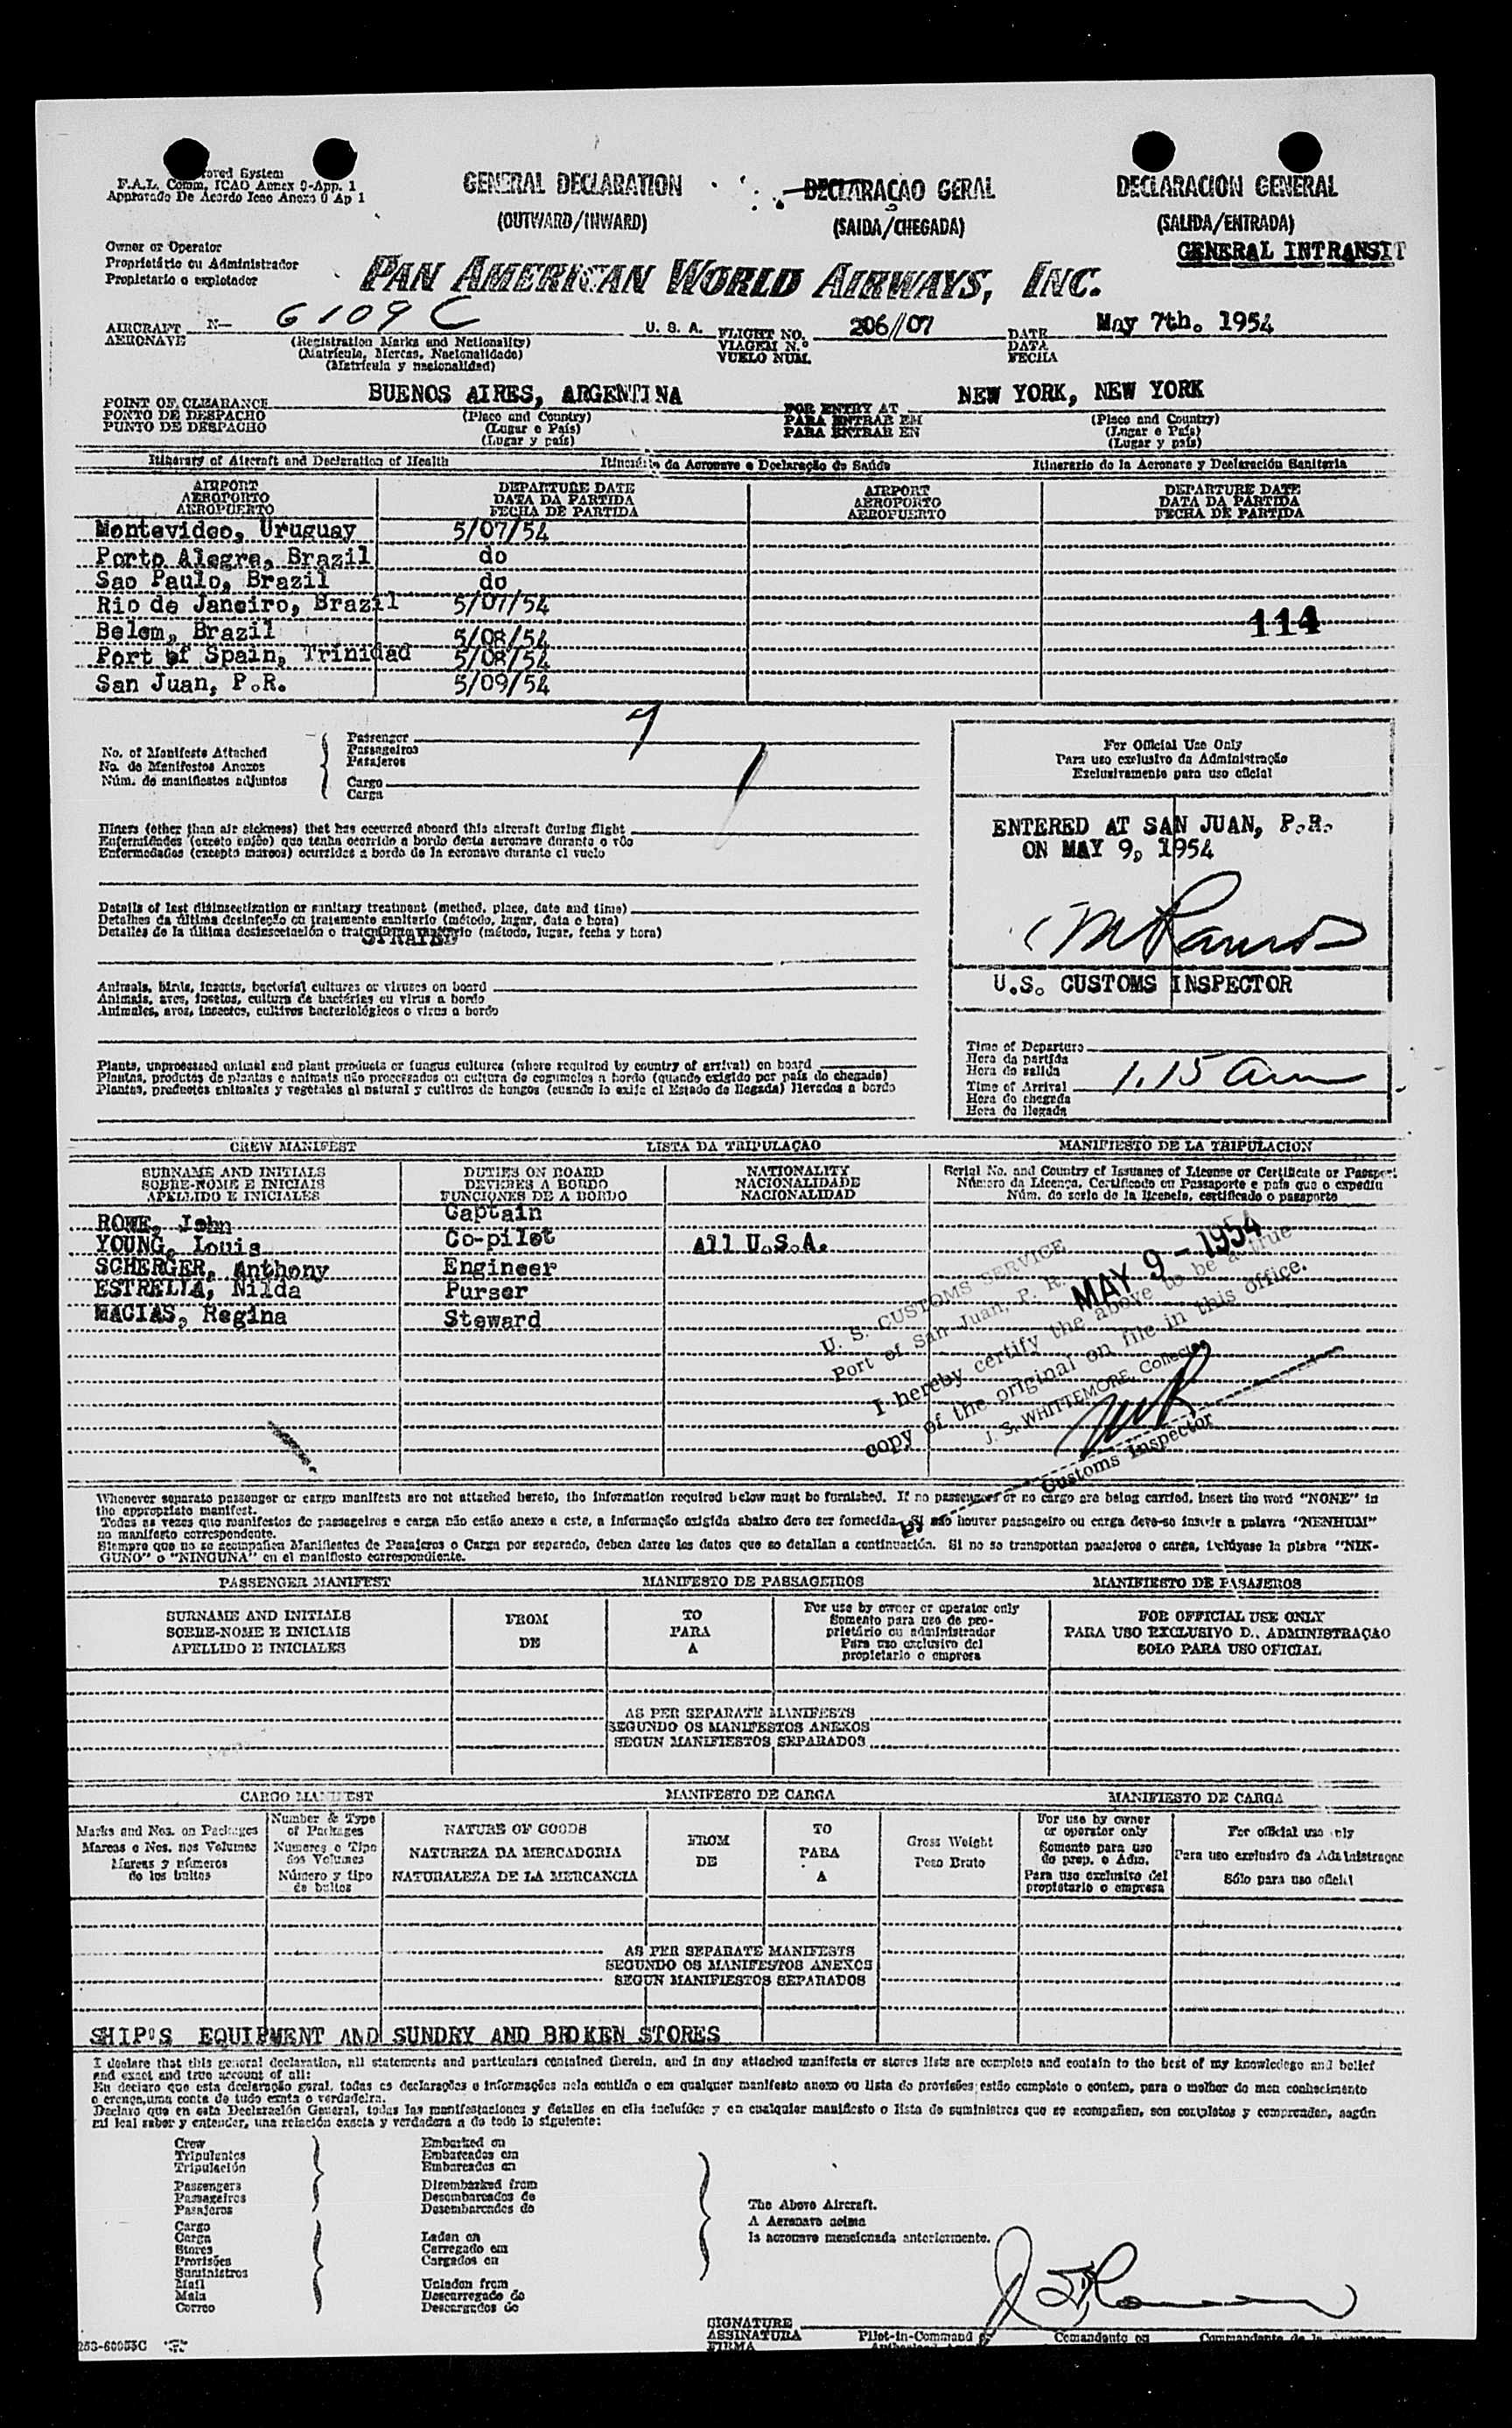 roved System
F.A.L. Comm, ICAO Annex 9-App. 1
Approvado De Acordo Icao Anexo 9 Ap 1
GENERAL DECLARATION
(OUTWARD/INWARD)
DECLARAÇAO GERAL
(SAIDA/CHEGADA)
DECLARACION GENERAL
(SALIDA/ENTRADA)
GENERAL INTRANSIT
Owner or Operator
Proprietário ou Administrador
Propietario o explotador
PAN AMERICAN WORLD AIRWAYS, INC.
AIRCRAFT N— 6109C U. S. A. FLIGHT NO. 206/07 DATE May 7th. 1954
AERONAVE (Registration Marks and Nationality) VIAGEM N.º DATA
(Matrícula, Marcas, Nacionalidade) VUELO NUM. FECHA
(Matrícula y nacionalidad)
POINT OF CLEARANCE BUENOS AIRES, ARGENTINA FOR ENTRY AT NEW YORK, NEW YORK
PONTO DE DESPACHO (Place and Country) PARA ENTRAR EM (Place and Country)
PUNTO DE DESPACHO (Lugar e País) PARA ENTRAR EN (Lugar e País)
(Lugar y país) (Lugar y país)
Itinerary of Aircraft and Declaration of Health Itinerário da Aeronave e Declaração de Saúde Itinerario de la Aeronave y Declaración Sanitaria
AIRPORT DEPARTURE DATE AIRPORT DEPARTURE DATE
AEROPORTO DATA DA PARTIDA AEROPORTO DATA DA PARTIDA
AEROPUERTO FECHA DE PARTIDA AEROPUERTO FECHA DE PARTIDA
Montevideo, Uruguay 5/07/54
Porto Alegre, Brazil do
Sao Paulo, Brazil do
Rio de Janeiro, Brazil 5/07/54
114
Belem, Brazil 5/08/54
Port of Spain, Trinidad 5/08/54
San Juan, P.R. 5/09/54
No. of Manifests Attached
No. de Manifestos Anexos
Núm. de manifiestos adjuntos
Passenger
Passageiros
Pasajeros
Cargo
Carga
Illness (other than air sickness) that has occurred aboard this aircraft during flight
Enfermidades (exceto enjôo) que tenha ocorrido a bordo desta aeronave durante o vôo
Enfermedades (excepto mareos) ocurridas a bordo de la aeronave durante el vuelo
Details of last disinsectization or sanitary treatment (method, place, date and time)
Detalhes da última desinfeção ou tratamento sanitario (método, lugar, data e hora)
Detalles de la última desinsectación o tratamiento sanitario (método, lugar, fecha y hora)
SPRAYED
Animals, birds, insects, bacterial cultures or viruses on board
Animais, aves, insetos, cultura de bactérias ou virus a bordo
Animales, aves, insectos, cultivos bacteriológicos o virus a bordo
Plants, unprocessed animal and plant products or fungus cultures (where required by country of arrival) on board
Plantas, produtos de plantas e animais não processados ou cultura de cogumelos a bordo (quando exigido por país de chegada)
Plantas, productos animales y vegetales al natural y cultivos de hongos (cuando lo exija el Estado de llegada) llevados a bordo
For Official Use Only
Para uso exclusivo da Administração
Exclusivamente para uso oficial
ENTERED AT SAN JUAN, P.R.
ON MAY 9, 1954
U.S. CUSTOMS INSPECTOR
Time of Departure
Hora da partida
Hora de salida
1.15 am
Time of Arrival
Hora de chegada
Hora de llegada
CREW MANIFEST LISTA DA TRIPULAÇAO MANIFIESTO DE LA TRIPULACION
SURNAME AND INITIALS DUTIES ON BOARD NATIONALITY Serial No. and Country of Issuance of License or Certificate or Passport
SOBRE-NOME E INICIAIS DEVERES A BORDO NACIONALIDADE Número da Licença, Certificado ou Passaporte e país que o expediu
APELLIDO E INICIALES FUNCIONES DE A BORDO NACIONALIDAD Núm. de serie de la licencia, certificado o pasaporte
ROWE, John Captain
YOUNG, Louis Co-pilot All U.S.A.
SCHERGER, Anthony Engineer
ESTRELLA, Nilda Purser
MACIAS, Regina Steward
MAY 9 - 1954
U. S. CUSTOMS SERVICE
Port of San Juan, P. R.
I hereby certify the above to be a true
copy of the original on file in this office.
J. S. WHITTEMORE, Collector
By
Customs Inspector
Whenever separate passenger or cargo manifests are not attached hereto, the information required below must be furnished. If no passengers or no cargo are being carried, insert the word "NONE" in
the appropriate manifest.
Todas as vezes que manifestos de passageiros e carga não estão anexo a este, a informação exigida abaixo deve ser fornecida. Si não houver passageiro ou carga deve-se inserir a palavra "NENHUM"
no manifesto correspondente.
Siempre que no se acompañen Manifiestos de Pasajeros o Carga por separado, deben darse los datos que se detallan a continuación. Si no se transportan pasajeros o carga, inclúyase la plabra "NIN-
GUNO" o "NINGUNA" en el manifiesto correspondiente.
PASSENGER MANIFEST MANIFESTO DE PASSAGEIROS MANIFIESTO DE PASAJEROS
SURNAME AND INITIALS FROM TO For use by owner or operator only FOR OFFICIAL USE ONLY
SOBRE-NOME E INICIAIS DE PARA Somento para uso de pro- PARA USO EXCLUSIVO D.. ADMINISTRAÇAO
APELLIDO E INICIALES A prietário ou administrador SOLO PARA USO OFICIAL
Para uso exclusivo del
propietario o empresa
AS PER SEPARATE MANIFESTS
SEGUNDO OS MANIFESTOS ANEXOS
SEGUN MANIFIESTOS SEPARADOS
CARGO MANIFEST MANIFESTO DE CARGA MANIFIESTO DE CARGA
Marks and Nos. on Packages
Marcas e Nos. nos Volumes
Marcas y números
de los bultos
Number & Type
of Packages
Numeros e Tipo
dos Volumes
Número y tipo
de bultos
NATURE OF GOODS
NATUREZA DA MERCADORIA
NATURALEZA DE LA MERCANCIA
FROM
DE
TO
PARA
A
Gross Weight
Peso Bruto
For use by owner
or operator only
Somento para uso
do prop. e Adm.
Para uso exclusivo del
propietario o empresa
For official use only
Para uso exclusivo da Administraçao
Sólo para uso oficial
AS PER SEPARATE MANIFESTS
SEGUNDO OS MANIFESTOS ANEXOS
SEGUN MANIFIESTOS SEPARADOS
SHIP'S EQUIPMENT AND SUNDRY AND BROKEN STORES
I declare that this general declaration, all statements and particulars contained therein, and in any attached manifests or stores lists are complete and contain to the best of my knowledege and belief
and exact and true account of all:
Eu declaro que esta declaração geral, todas as declarações e informações nela contida o em qualquer manifesto anexo ou lista do provisões estão completo o contem, para o melhor do meu conhecimento
o crença,uma conta de tudo exata o verdadeira.
Declaro que en esta Declaración General, todas las manifestaciones y detalles en ella incluídos y en cualquier manifiesto o lista de suministros que se acompañen, son completos y comprenden, según
mi leal saber y entender, una relación exacta y verdadera a de todo lo siguiente:
Crew
Tripulantes
Tripulación
Passengers
Passageiros
Pasajeros
Cargo
Carga
Stores
Provisões
Suministros
Mail
Mala
Correo
Embarked on
Embarcados em
Embarcados en
Disembarked from
Desembarcados de
Desembarcados de
Laden on
Carregado em
Cargados en
Unladen from
Descarregado de
Descargados de
The Above Aircraft.
A Aeronave acima
la aeronave mencionada anteriormente.
SIGNATURE
ASSINATURA Pilot-in-Command Comandante ou Commandante de la
FIRMA
253-60055C